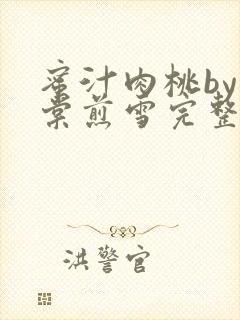 蜜汁肉桃by
棠煎雪完整
洪警官